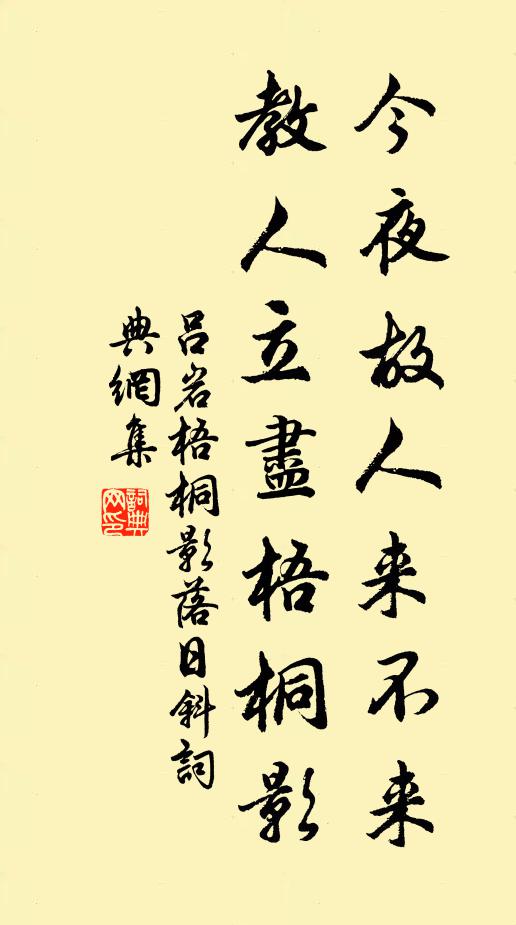 今夜故人来不来
教人立盡梧桐影
吕岩梧桐影落日斜詞
典網集
詞典網印